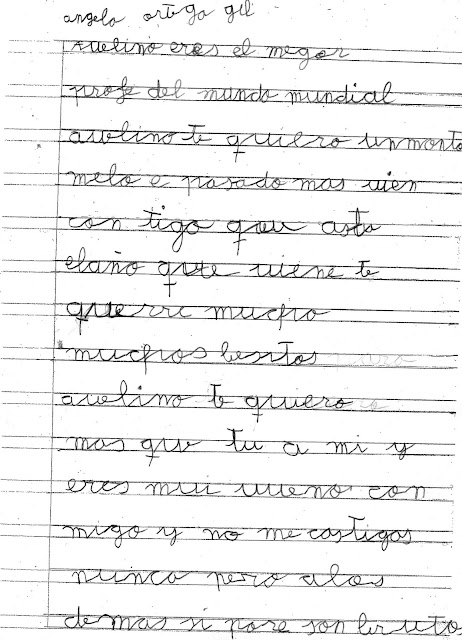 angela ortega gil
Avelino eres el megor
profe del mundo mundial
avelino te quiero un monto
melo e pasado mas vien
con tigo que asta
elaño que viene te
querre mucho
muchos besitos
avelino te quiero
mas que tu a mi y
eres mui vueno con
migo y no me castigas
nunca pero alos
demas si pore son bruto